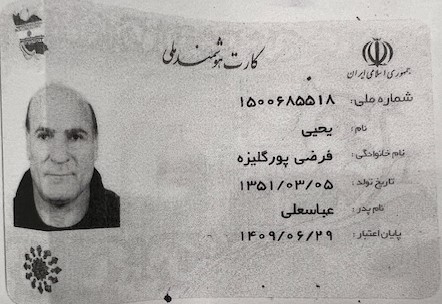 کارت هوشمند ملی
جمهوری اسلامی ایران
شماره ملی: ۱۵۰۰۶۸۵۵۱۸
نام: یحیی
نام خانوادگی: فرضی پورگلیزه
تاریخ تولد: ۱۳۵۱/۰۳/۰۵
نام پدر: عباسعلی
پایان اعتبار: ۱۴۰۹/۰۶/۲۹